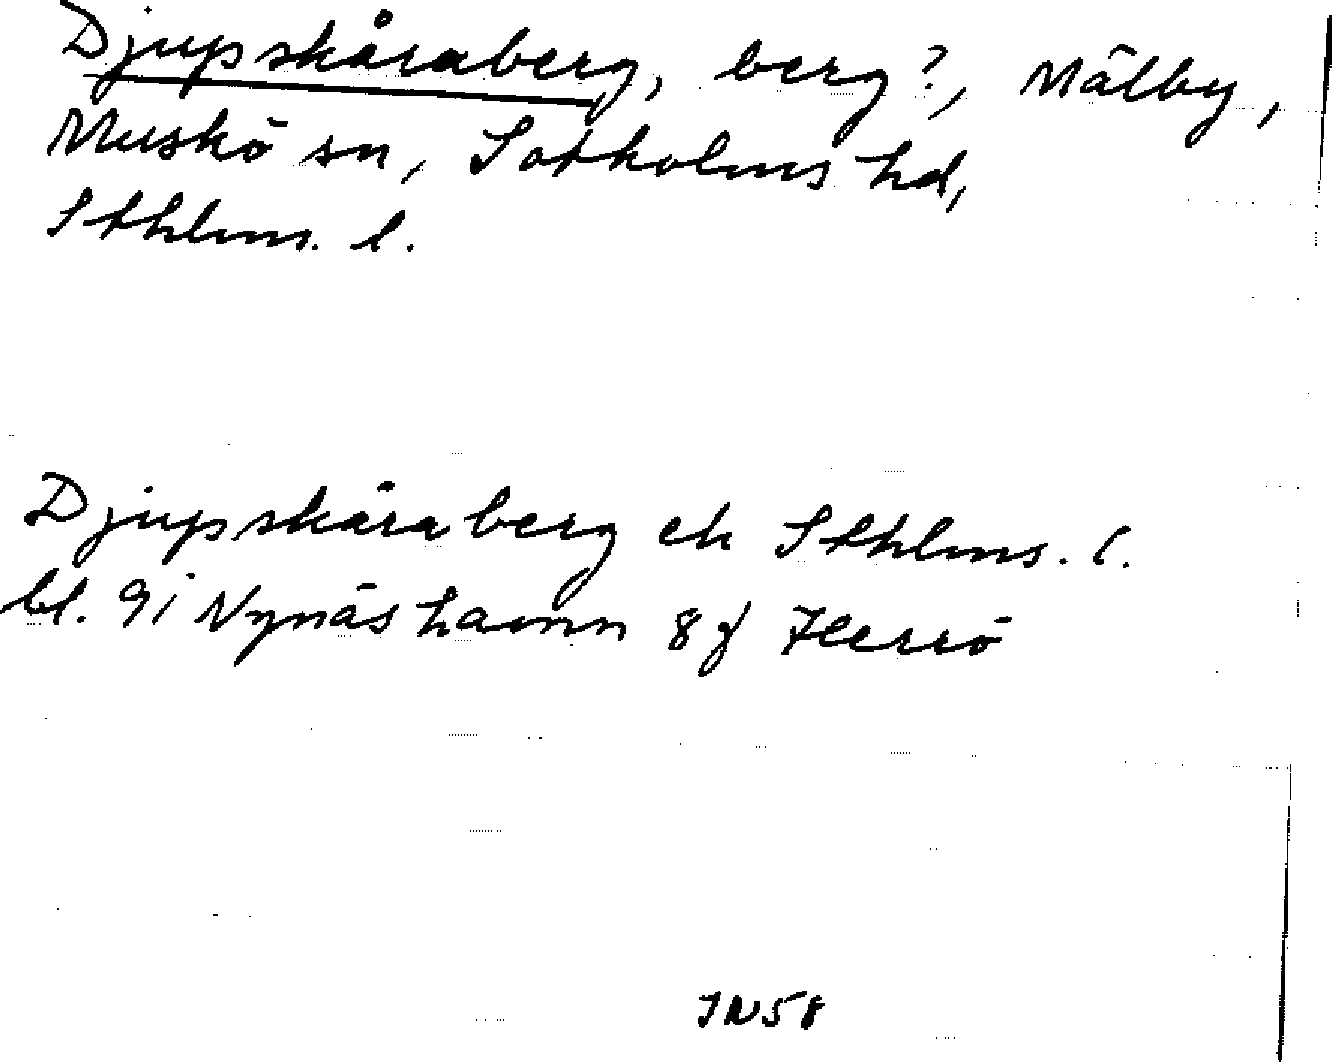 Djupskåraberg, berg?, Mälby,
Muskö sn, Sotholms hd,
Sthlms. l.
Djupskåraberg ek Sthlms. l.
bl. 9i Nynäshamn 8f Herrö
JN58